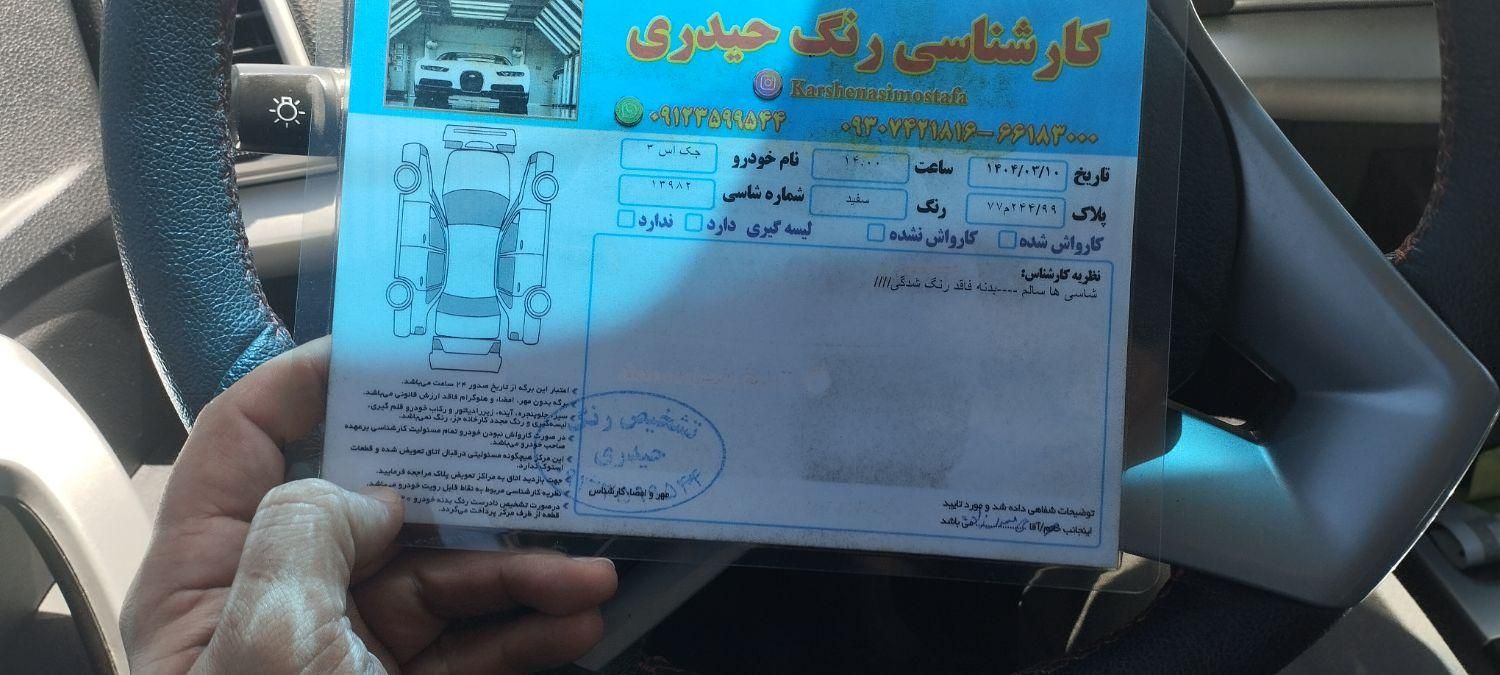 کارشناسی رنگ حیدری
Karshenasimostafa
۰۹۳۰۷۴۲۱۸۱۶-۶۶۱۸۳۰۰۰ ۰۹۱۲۳۵۹۹۵۴۴
تاریخ ۱۴۰۴/۰۳/۱۰ ساعت ۱۴:۰۰ نام خودرو جک اس ۳
پلاک ۷۷م۲۴۴/۹۹ رنگ سفید شماره شاسی ۱۳۹۸۲
کارواش شده کارواش نشده لیسه گیری دارد ندارد
نظریه کارشناس:
شاسی ها سالم ----بدنه فاقد رنگ شدگی////
اعتبار این برگه از تاریخ صدور ۲۴ ساعت می‌باشد.
برگه بدون مهر، امضاء و هلوگرام فاقد ارزش قانونی می‌باشد.
سپر، جلوپنجره، آینه، زیررادیاتور و رکاب خودرو قلم گیری،
لیسه‌گیری و رنگ مجدد کارخانه جزء رنگ نمی‌باشد.
در صورت کارواش نبودن خودرو تمام مسئولیت کارشناسی برعهده
صاحب خودرو می‌باشد.
این مرکز هیچگونه مسئولیتی درقبال اتاق تعویض شده و قطعات
استوک ندارد.
جهت بازدید اتاق به مراکز تعویض پلاک مراجعه فرمایید.
نظریه کارشناسی مربوط به نقاط قابل رویت خودرو می‌باشد.
درصورت تشخیص نادرست رنگ بدنه خودرو
قطعه از طرف مرکز پرداخت می‌گردد.
تشخیص رنگ
حیدری
مهر و امضاء کارشناس
توضیحات شفاهی داده شد و مورد تایید
اینجانب خانم/آقا می باشد